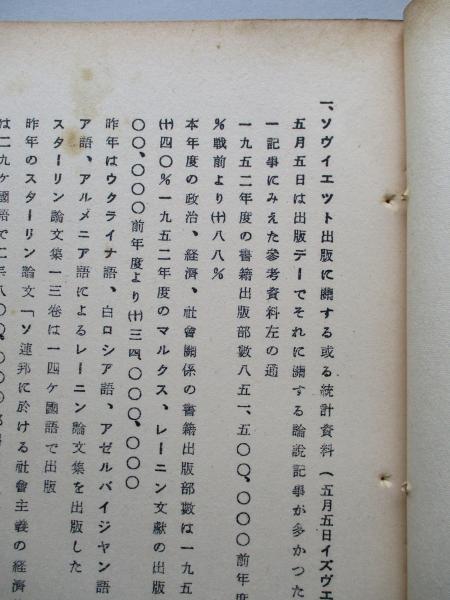 一、ソヴイエツト出版に關する或る統計資料（五月五日イズヴエ
五月五日は出版デーでそれに關する論說記事が多かつた
一記事にみえた參考資料左の通
一九五二年度の書籍出版部數八五一、五〇〇、〇〇〇前年度
％戰前より（十）八八％
本年度の政治、経濟、社會關係の書籍出版部數は一九五
（十）四〇％一九五二年度のマルクス、レーニン文獻の出版
〇〇、〇〇〇前年度より（十）三四、〇〇〇、〇〇〇
昨年はウクライナ語、白ロシア語、アゼルバイジヤン語
ア語、アルメニア語によるレーニン論文集を出版した
スターリン論文集一三卷は一四ケ國語で出版
昨年のスターリン論文「ソ連邦に於ける社會主義の経濟
は二九ケ國語で二